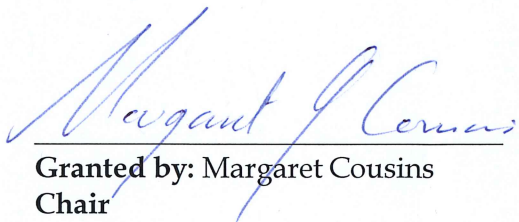 Margaret Y Cousins
Granted by: Margaret Cousins
Chair